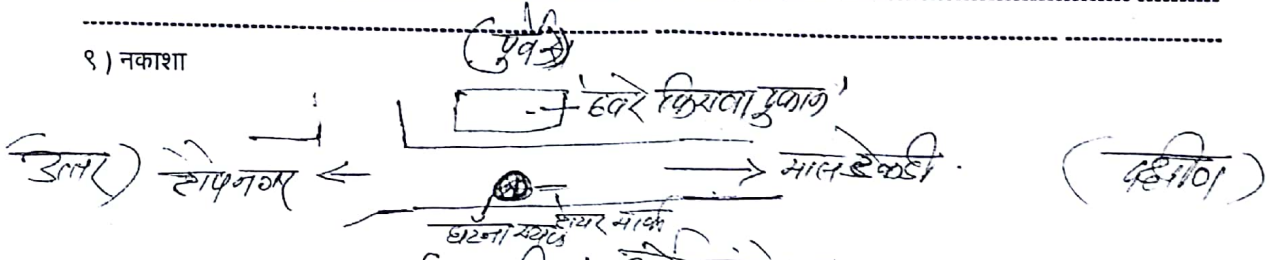 ९) नकाशा
(पुर्व)
ठवरे किराणा दुकान
उत्तर) टोपनगर ← → मालटेकडी. (दक्षीण)
घटना स्थळ टायर मार्क